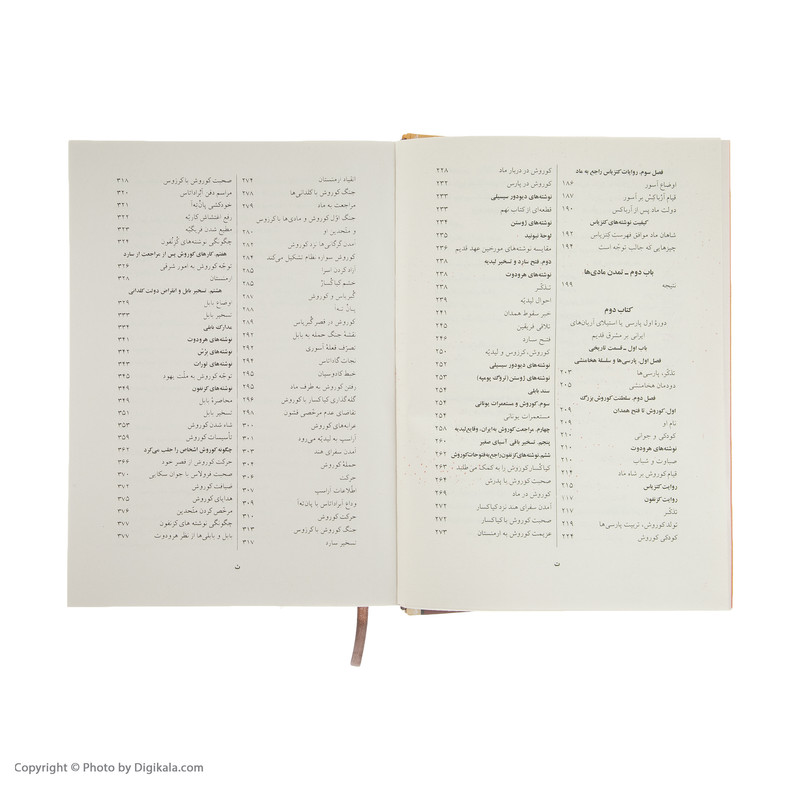 فصل سوم. روایات کتزیاس راجع به ماد
اوضاع آسور ۱۸۶
قیام آرباکس بر آسور ۱۸۷
دولت ماد پس از آرباکس ۱۹۰
کیفیت نوشته‌های کتزیاس
شاهان ماد موافق فهرست کتزیاس ۱۹۲
چیزهایی که جالب توجّه است ۱۹۴
باب دوم ـ تمدن مادی‌ها
نتیجه ۱۹۹
کتاب دوم
دورهٔ اول پارسی یا استیلای آریان‌های
ایرانی بر مشرق قدیم
باب اول ـ قسمت تاریخی
فصل اول. پارسی‌ها و سلسلهٔ هخامنشی
تذکّر، پارسی‌ها ۲۰۳
دودمان هخامنشی ۲۰۵
فصل دوم. سلطنت کوروش بزرگ
اول. کوروش تا فتح همدان ۲۰۹
نام او ۲۰۹
کودکی و جوانی ۲۱۰
نوشته‌های هرودوت ۲۱۰
صباوت و شباب ۲۱۰
قیام کوروش بر شاه ماد ۲۱۴
روایت کتزیاس ۲۱۵
روایت کزنفون ۲۱۷
تذکّر ۲۱۷
تولد کوروش، تربیت پارسی‌ها ۲۱۹
کودکی کوروش ۲۲۴
کوروش در دربار ماد ۲۲۸
کوروش در پارس ۲۳۲
نوشته‌های دیودور سیسیلی ۲۳۳
قطعه‌ای از کتاب نهم ۲۳۳
نوشته‌های ژوستن ۲۳۴
لوحهٔ نبونید ۲۳۵
مقایسه نوشته‌های مورخین عهد قدیم ۲۳۶
دوم. فتح سارد و تسخیر لیدیه ۲۳۸
نوشته‌های هرودوت ۲۳۸
تذکّر ۲۳۸
احوال لیدیّه ۲۳۹
خبر سقوط همدان ۲۴۱
تلاقی فریقین ۲۴۵
فتح سارد ۲۴۶
کوروش، کرزوس و لیدیّه ۲۵۰
نوشته‌های دیودور سیسیلی ۲۵۲
نوشته‌های ژوستن (تروگ پومپه) ۲۵۳
سند بابلی ۲۵۴
سوم. کوروش و مستعمرات یونانی ۲۵۴
مستعمرات یونانی ۲۵۴
چهارم. مراجعت کوروش به ایران، وقایع لیدیه ۲۵۸
پنجم. تسخیر باقی آسیای صغیر ۲۶۰
ششم. نوشته‌های کزنفون راجع به فتوحات کوروش ۲۶۲
کیاکسار کوروش را به کمک می‌طلبد ۲۶۳
صحبت کوروش با پدرش ۲۶۴
کوروش در ماد ۲۶۹
آمدن سفرای هند نزد کیاکسار ۲۷۲
صحبت کوروش با کیاکسار ۲۷۲
عزیمت کوروش به ارمنستان ۲۷۳
ت
انقیاد ارمنستان ۲۷۴
جنگ کوروش با کلدانی‌ها ۲۷۸
مراجعت به ماد ۲۷۹
جنگ اوّل کوروش و مادی‌ها با کرزوس
و متحدین او ۲۸۰
آمدن گرگانی‌ها نزد کوروش ۲۸۲
کوروش سواره نظام تشکیل می‌کند ۲۸۴
آزاد کردن اسرا ۲۸۵
خشم کیاکسار ۲۸۵
گبریاس و کوروش ۲۸۷
پان‌ته‌آ ۲۸۸
کوروش در قصر گبریاس ۲۸۹
نقشهٔ جنگ حمله به بابل ۲۹۲
تصرّف قعلهٔ آسوری ۲۹۲
نجات گاداتاس ۲۹۴
خبط کادوسیان ۲۹۵
رفتن کوروش به طرف ماد ۲۹۵
گله‌گذاری کیاکسار با کوروش ۲۹۶
تقاضای عدم مرخّصی قشون ۲۹۸
عرابه‌های کوروش ۳۰۰
آراسپ به لیدیّه می‌رود ۳۰۱
آمدن سفرای هند ۳۰۳
حملهٔ کوروش ۳۰۴
حرکت ۳۰۶
اطّلاعات آراسپ ۳۰۷
وداع آبراداتاس با پان‌ته‌آ ۳۰۹
حرکت کوروش ۳۱۰
جنگ کوروش با کرزوس ۳۱۳
تسخیر سارد ۳۱۷
صحبت کوروش با کرزوس ۳۱۸
مراسم دفن آبراداتاس ۳۲۰
خودکشی پان‌ته‌آ ۳۲۱
رفع اغتشاش کاریّه ۳۲۲
مطیع شدن فریگیّه ۳۲۳
چگونگی نوشته‌های گزنُفون ۳۲۴
هفتم. کارهای کوروش پس از مراجعت از سارد
توجّه کوروش به امور شرقی ۳۲۶
ارمنستان ۳۲۸
هشتم. تسخیر بابل و انقراض دولت کلدانی
اوضاع بابل ۳۲۹
تسخیر بابل ۳۳۳
مدارک بابلی ۳۳۴
نوشته‌های هرودوت ۳۴۱
نوشته‌های برُس ۳۴۲
نوشته‌های تورات ۳۴۳
توجّه کوروش به ملّت یهود ۳۴۵
نوشته‌های کزنفون ۳۴۹
محاصرهٔ بابل ۳۴۹
تسخیر بابل ۳۵۱
شاه شدن کوروش ۳۵۳
تأسیسات کوروش ۳۵۹
چگونه کوروش اشخاص را جلب می‌کرد ۳۶۲
حرکت کوروش از قصر خود ۳۶۶
صحبت فرولاس با جوان سکایی ۳۷۰
ضیافت کوروش ۳۷۲
هدایای کوروش ۳۷۵
مرخّص کردن متّحدین ۳۷۶
چگونگی نوشته های کزنفون ۳۷۷
بابل و بابلی‌ها از نظر هرودوت ۳۷۷
ث
Copyright © Photo by Digikala.com